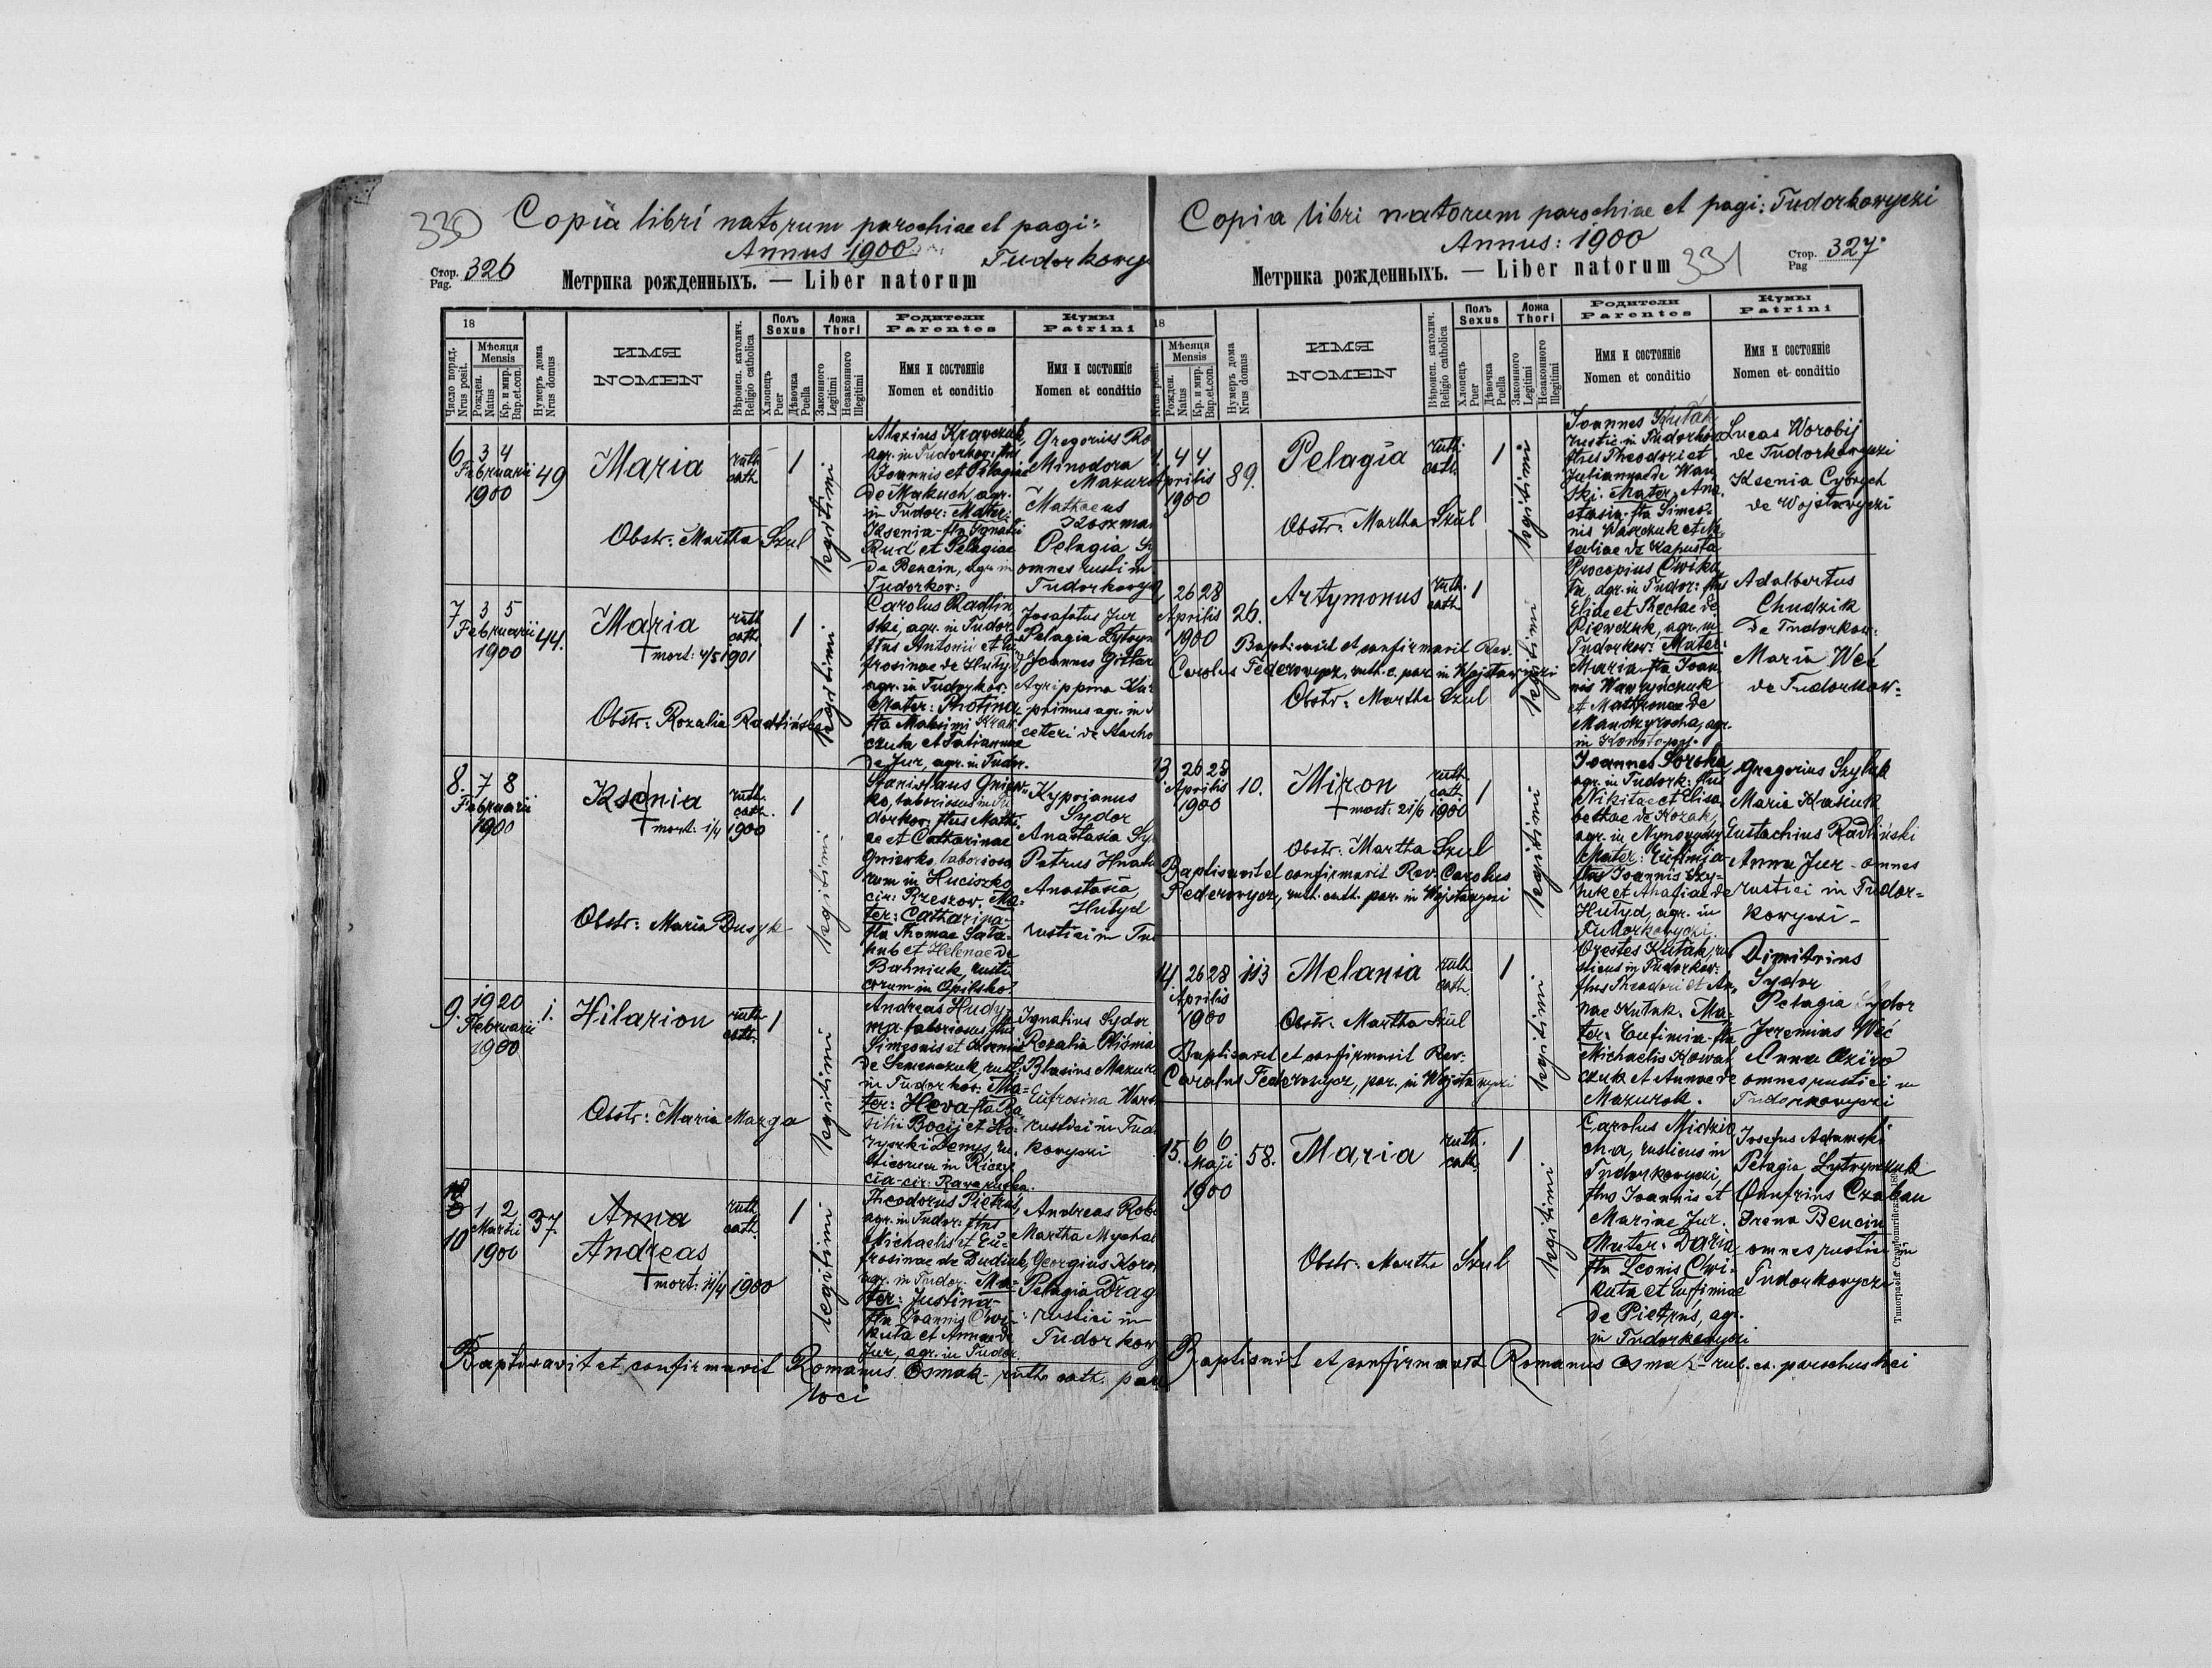 330 Copia libri natorum parochiae et pagi:
Annus 1900
Tudorkowy
Стор. Pag. 326
Метрика рожденныхъ. — Liber natorum
18
Число поряд. Nrus posit.
Мѣсяця Mensis
Рожден. Natus
Кр. и мир. Bap.et.con.
Нумеръ дома Nrus domus
ИМЯ
NOMEN
Вѣроисп. католич. Religio catholica
Полъ Sexus
Хлопецъ Puer
Дѣвочка Puella
Ложа Thori
Законного Legitimi
Незаконного Illegitimi
Родители
Parentes
Имя и состояніе
Nomen et conditio
Кумы
Patrini
Имя и состояніе
Nomen et conditio
6. 3 4
Februarii
1900
49
Maria
ruth.
cath.
1
legitimi
Obstr: Martha Szul
Alexius Krawczuk,
agr. in Tudorkow: flius
Joannis et Pelagiae
de Makuch, agr.
in Tudor: Mater:
Ksenia flia Ignatii
Rud et Pelagiae
de Bencin, agr. in
Tudorkov:
Gregorius Ro
Minodora
Mazur
Mathaeus
Koszma
Pelagia
omnes rusti in
Tudorkowy
7 3 5
Februarii
1900
44.
Maria
ruth.
cath.
1
† mort: 4/5 1901
legitimi
Obstr: Rozalia Radlińska
Carolus Radlin
ski, agr. in Tudor:
flius Antonii et Eu
frosinae de Hutyd
agr. in Tudorkow:
Mater: Photina
flia Maksimi Kraw
czuka et Tatiannae
de Jur, agr. in Tudor.
Josafatus Jur
Pelagia Lytwyn
Joannes Gittar
Agrippina
primus agr. in
ceteri de
8. 7 8
Februarii
1900
Ksenia
ruth.
cath.
1
† mort: 1/4 1900
legitimi
Obstr: Maria Busyk
Stanislaus Gniew
ko, laboriosus in Tu
dorkow: flius Mathi
ae et Catharinae
Gniewko, laborioso
rum in Huciszko
cir: Rzeszow. Ma=
ter: Catharina
flia Thomae Sala
hub et Helenae de
Bahniuk, rusti
corum in Opilsko.
Kyprianus
Sydor
Anastasia Sy
Petrus Hnat
Anastasia
Hutyd
rustici in Tu
9. 19 20
Februarii
1900
1.
Hilarion
ruth.
cath.
1
legitimi
Obstr: Maria Mazga
Andreas Hudy=
ma laboriosus, flius
Simeonis et Kseniae
de Semenczuk, rust.
in Tudorkov: Ma=
ter: Heva flia Ba
silii Bocij et
Demys, ru
sticorum in
cir: Rava ruska.
Ignatius Sydor
Rozalia
Blasius Mazur
Eufrosina
rustici in Tudor
kowyczi
10
1 2
Martii
1900
37.
Anna
Andreas
ruth.
cath.
1
† mort: 11/4 1900
legitimi
Theodorus Pietruś,
agr. in Tudor: flius
Michaelis et Eu=
frosinae de Dudiuk,
agr. in Tudor. Ma=
ter: Justina
flia Joannis Cwi
kuta et Annae de
Jur, agr. in Tudor
Andreas Rob
Martha Mychal
Georgius Koro
Pelagia Drag
rustici in
Tudorkow
Baptisavit et confirmavit Romanus Osmak ruth. cath. par
loci
Copia libri natorum parochiae et pagi: Tudorkowyczi
Annus: 1900
331
Стор. Pag 327
Метрика рожденныхъ. — Liber natorum
18
Nrus posit.
Мѣсяця Mensis
Рожден. Natus
Кр. и мир. Bap.et.con.
Нумеръ дома Nrus domus
ИМЯ
NOMEN
Вѣроисп. католич. Religio catholica
Полъ Sexus
Хлопецъ Puer
Дѣвочка Puella
Ложа Thori
Законного Legitimi
Незаконного Illegitimi
Родители
Parentes
Имя и состояніе
Nomen et conditio
Кумы
Patrini
Имя и состояніе
Nomen et conditio
4 4
Aprilis
1900
89.
Pelagia
ruth.
cath.
1
legitimi
Obstr: Martha Szul
Joannes Kutak
rustic. in Tudorkow
flius Theodori et
Juliannae de Wan
ski. Mater: Ana
stasia flia Simeo=
nis Warczuk et Na
taliae de Kapusta
Lucas Worobij
de Tudorkowyczi
Ksenia Cybrych
de Wojslawyczi
26 28
Aprilis
1900
26.
Artymonus
ruth.
cath.
1
legitimi
Baptisavit et confirmavit Rev.
Carolus Federowycz, ruth. c. par. in Wojslawyczi
Obstr: Martha Szul
Procopius Cwiku
ta, agr. in Tudor: flius
Eliae et Theclae de
Piewczuk, agr. in
Tudorkow: Mater:
Maria flia Joan
nis Wawrynczuk
et Matronae de
agr.
in
Adalbertus
Chudzik
de Tudorkow:
Maria Weć
de Tudorkow=
13. 26 28
Aprilis
1900
10.
Miron
ruth.
cath.
1
† mort: 21/6 1900
legitimi
Obstr: Martha Szul
Baptisavit et confirmavit Rev. Carolus
Federowycz, ruth. cath. par. in Wojslawyczi
Joannes Soroka
agr. in Tudork: flius
Nikitae et Elisa
bethae de Kozak,
agr. in
Mater: Eufimia
flia Joannis Szy=
luk et Anastasiae de
Hutyd, agr. in
Tudorkowyczi.
Gregorius Szyluk
Maria Krasiuk
Eustachius Radliński
Anna Jur omnes
rustici in Tudor=
kowyczi
14. 26 28
Aprilis
1900
113
Melania
ruth.
cath.
1
legitimi
Obstr. Martha Szul
Baptisavit et confirmavit Rev:
Carolus Federowycz, par. in Wojslawyczi
Orestes Kutak, ru
sticus in Tudorkow:
flius Theodori et An
nae Kutak. Ma=
ter: Eufimia flia
Michaelis Kowal
czuk et Annae de
Mazurok.
Dimitrius
Sydor
Pelagia Sydor
Jeremias Weć
Anna
omnes rustici in
Tudorkowyczi
15. 6 6
Maji
1900
58.
Maria
ruth.
cath.
1
legitimi
Obstr: Martha Szul
Carolus Midzio
cha, rusticus in
Tudorkowyczi,
flius Joannis et
Mariae Jur.
Mater: Daria
flia Leonis Cwi=
kuta et Eufimiae
de Pietruś, agr.
in Tudorkowyczi
Josefus Adamski
Pelagia Lytwynczuk
Onufrius Czaban
Irena Bencin
omnes rustici in
Tudorkowyczi
Baptisavit et confirmavit Romanus Osmak rut. ca. parochus loci